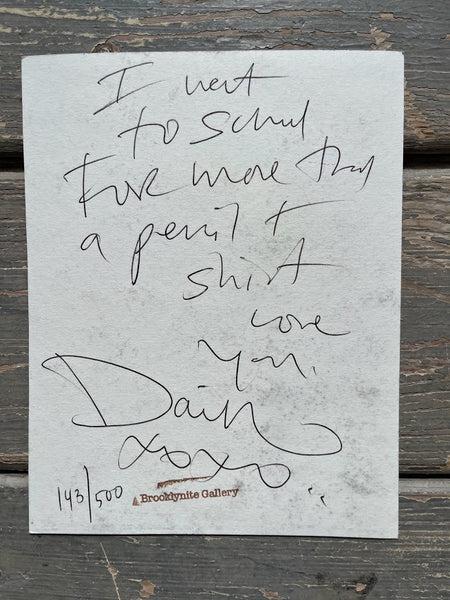 I went
to school
For more than
a pencil +
shirt
Love
You.
Dain
xoxo
143/500
Brooklynite Gallery